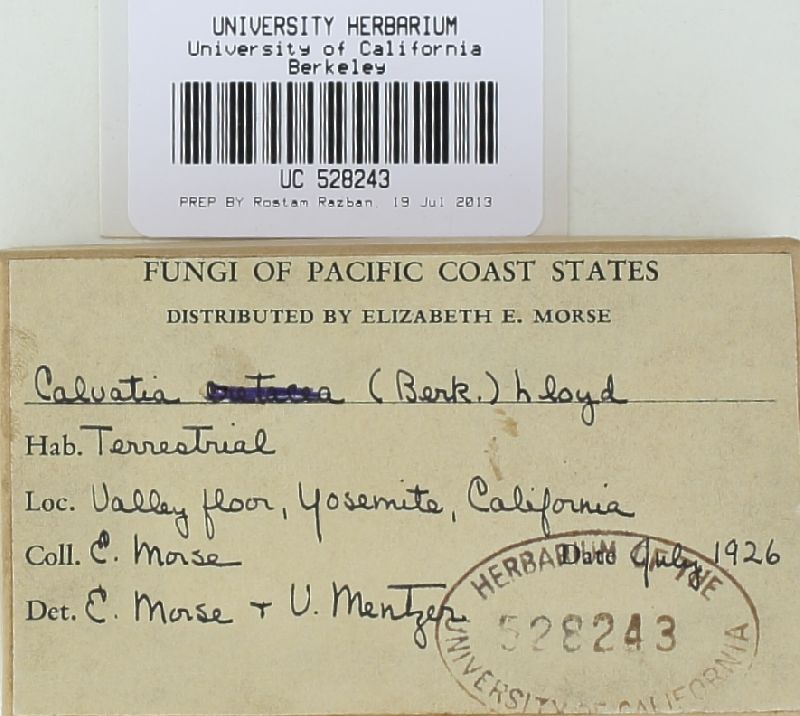 UNIVERSITY HERBARIUM
University of California
Berkeley
UC 528243
PREP BY Rostam Razban, 19 Jul 2013
FUNGI OF PACIFIC COAST STATES
DISTRIBUTED BY ELIZABETH E. MORSE
Calvatia cretacea (Berk.) Lloyd
Hab. Terrestrial
Loc. Valley floor, Yosemite, California
Coll. E. Morse Date July 1926
Det. E. Morse + V. Mentzer
HERBARIUM OF THE
528243
UNIVERSITY OF CALIFORNIA